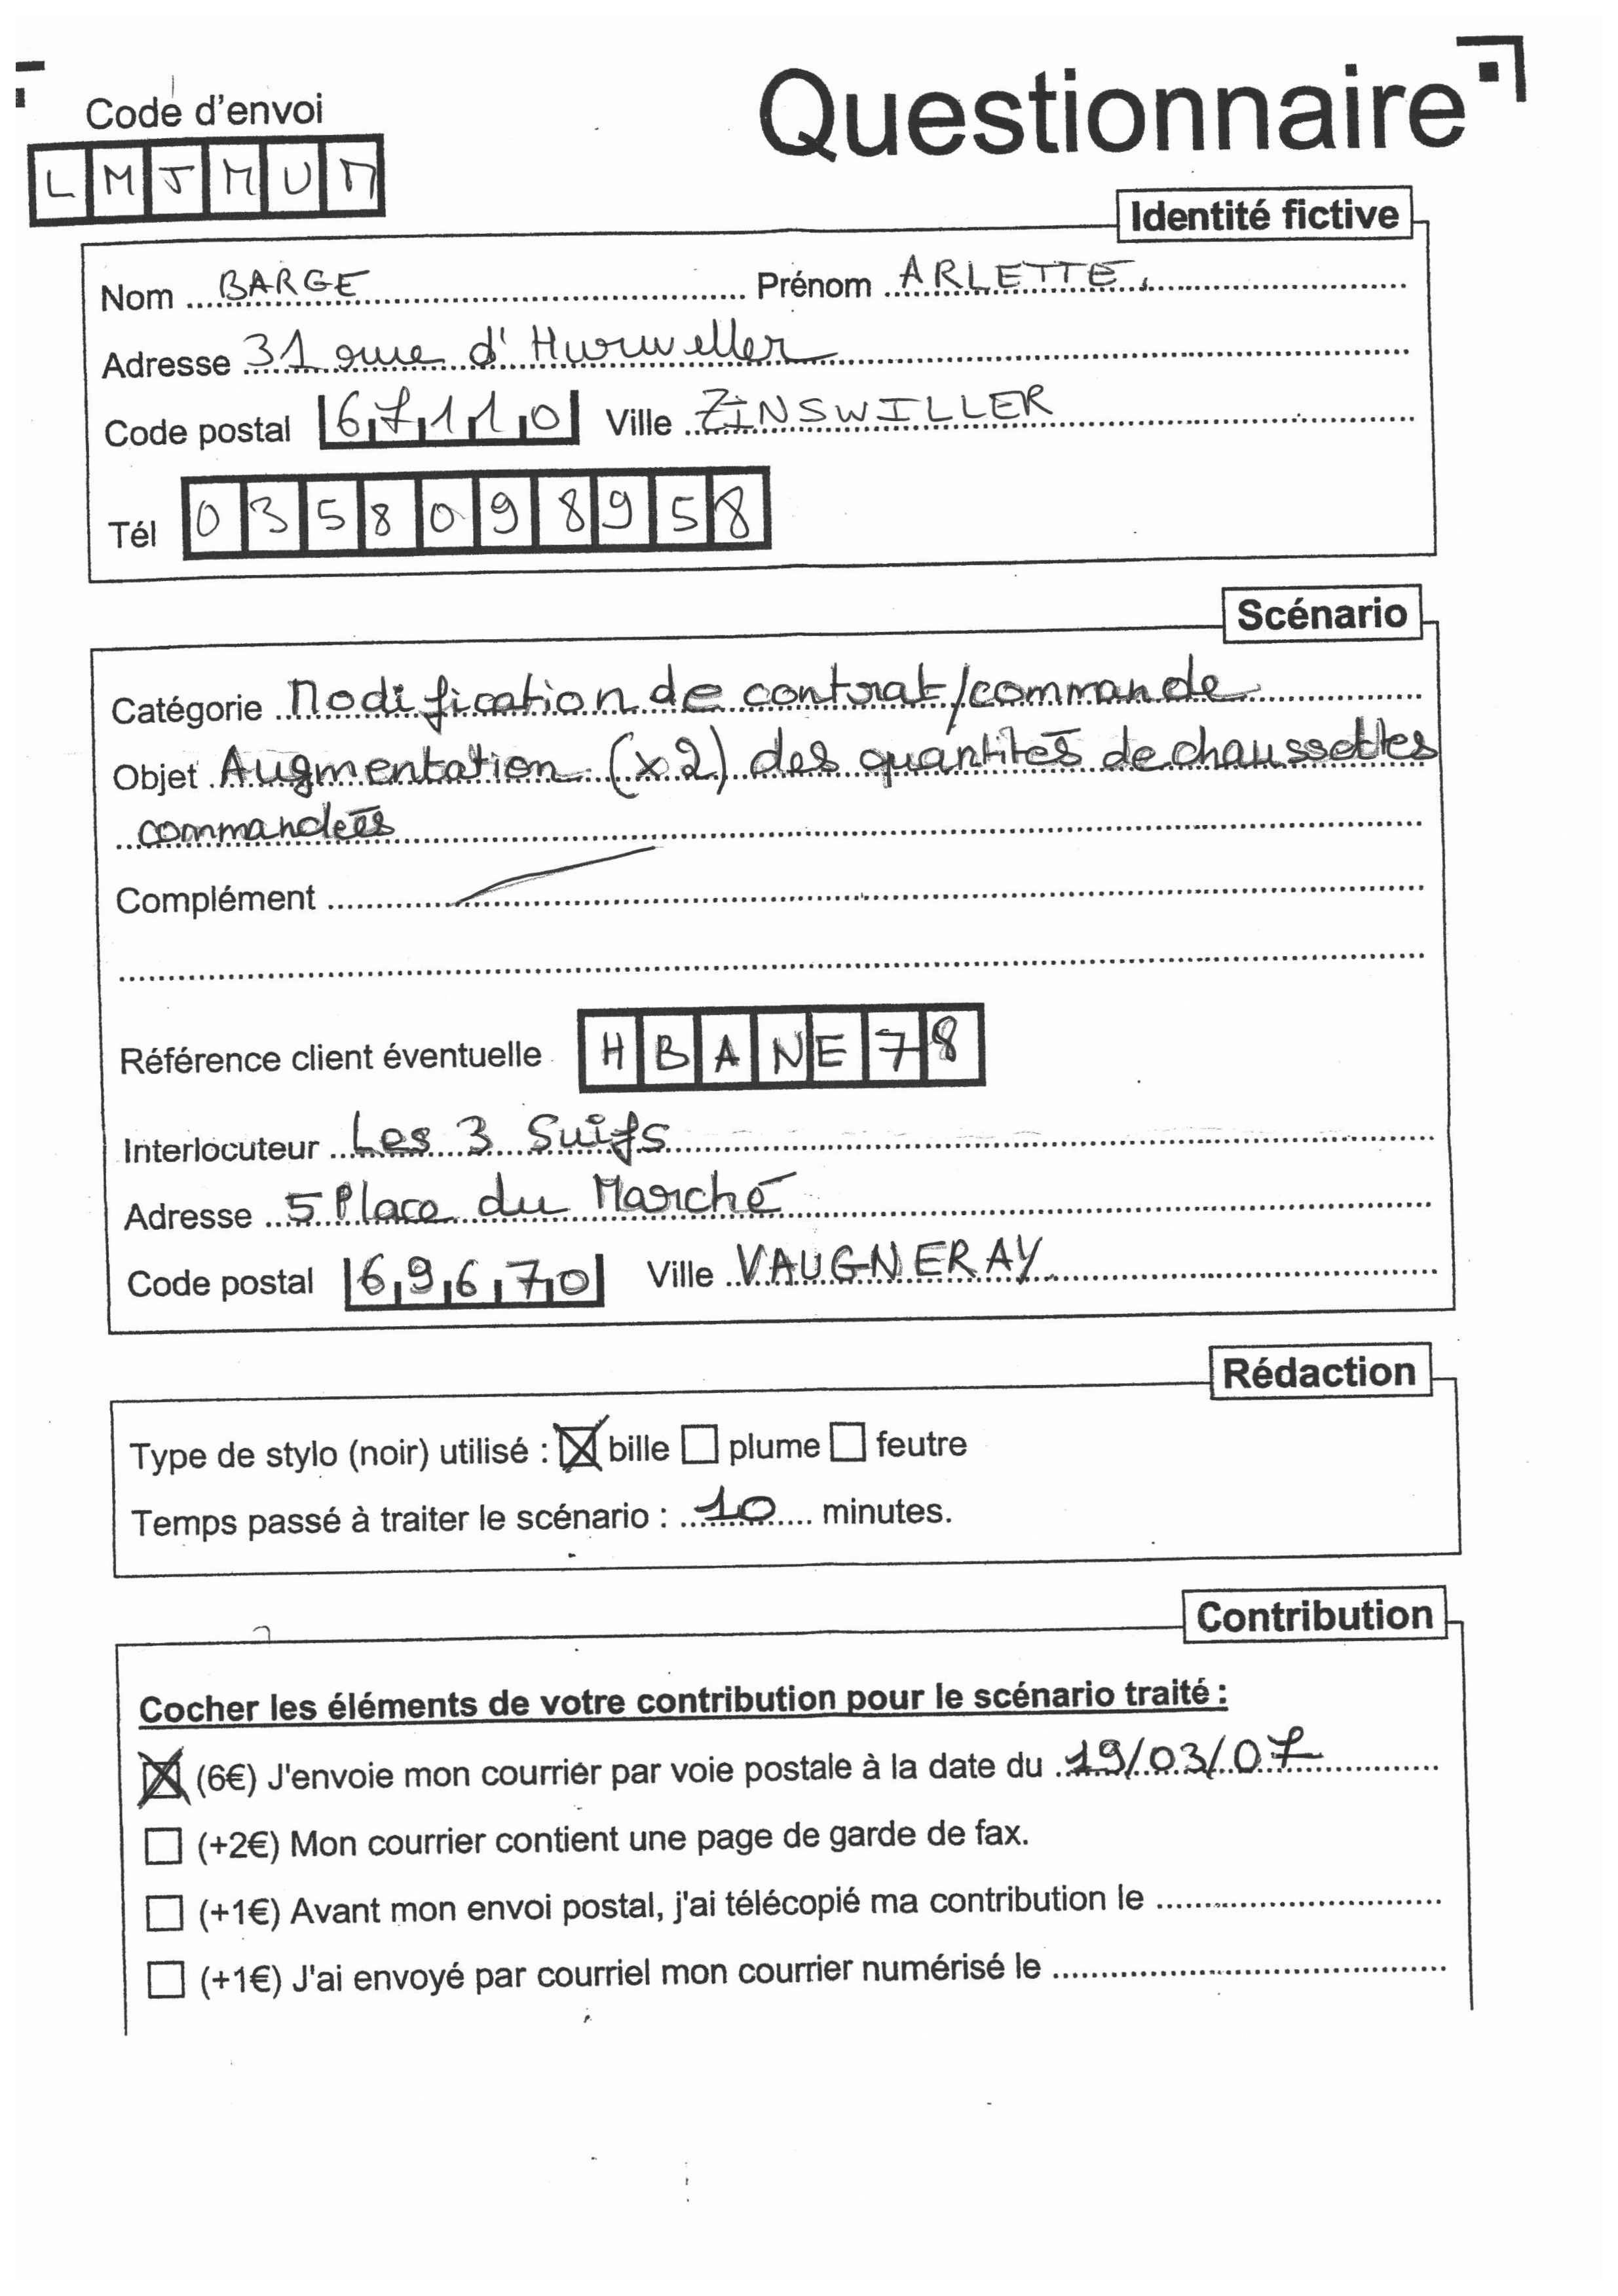 Questionnaire
Code d'envoi
LMJMUM
Identité fictive
Nom BARGE Prénom ARLETTE
Adresse 31 rue d'Huruweller
Code postal 67110 Ville ZINSWILLER
Tél 0358098958
Scénario
Catégorie Modification de contrat/commande
Objet Augmentation (x2) des quantités de chaussettes
commandées
Complément
Référence client éventuelle HBANE78
Interlocuteur Les 3 Suifs
Adresse 5 Place du Marché
Code postal 69670 Ville VAUGNERAY
Rédaction
Type de stylo (noir) utilisé : bille plume feutre
Temps passé à traiter le scénario : 10 minutes.
Contribution
Cocher les éléments de votre contribution pour le scénario traité :
(6€) J'envoie mon courrier par voie postale à la date du 19/03/07
(+2€) Mon courrier contient une page de garde de fax.
(+1€) Avant mon envoi postal, j'ai télécopié ma contribution le
(+1€) J'ai envoyé par courriel mon courrier numérisé le